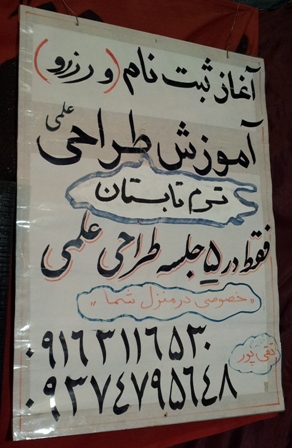 آغاز ثبت نام (و رزرو)
آموزش طراحی علمی
ترم تابستان
فقط در ۵ جلسه طراحی علمی
"خصوصی در منزل شما"
تقی پور
۰۹۱۶۳۱۱۶۵۳۰
۰۹۳۷۴۷۹۵۶۴۸